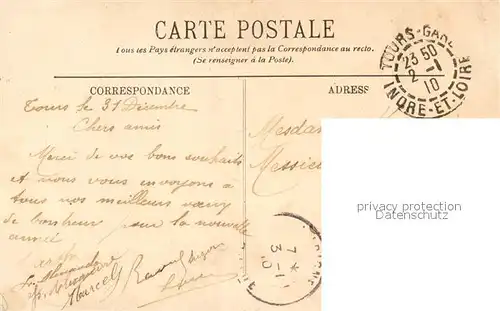 CARTE POSTALE
Tous les Pays étrangers n'acceptent pas la Correspondance au recto.
(Se renseigner à la Poste).
TOURS-GARE
23 50
2 - 1
10
INDRE-ET-LOIRE
CORRESPONDANCE
ADRESS
Tours le 31 Décembre
Chers amis
Merci de vos bons souhaits
et nous vous envoyons à
tous nos meilleurs vœux
de bonheur pour la nouvelle
année
Marcel
Mesda
Messieu
privacy protection
Datenschutz
7 *
3 - 1
10